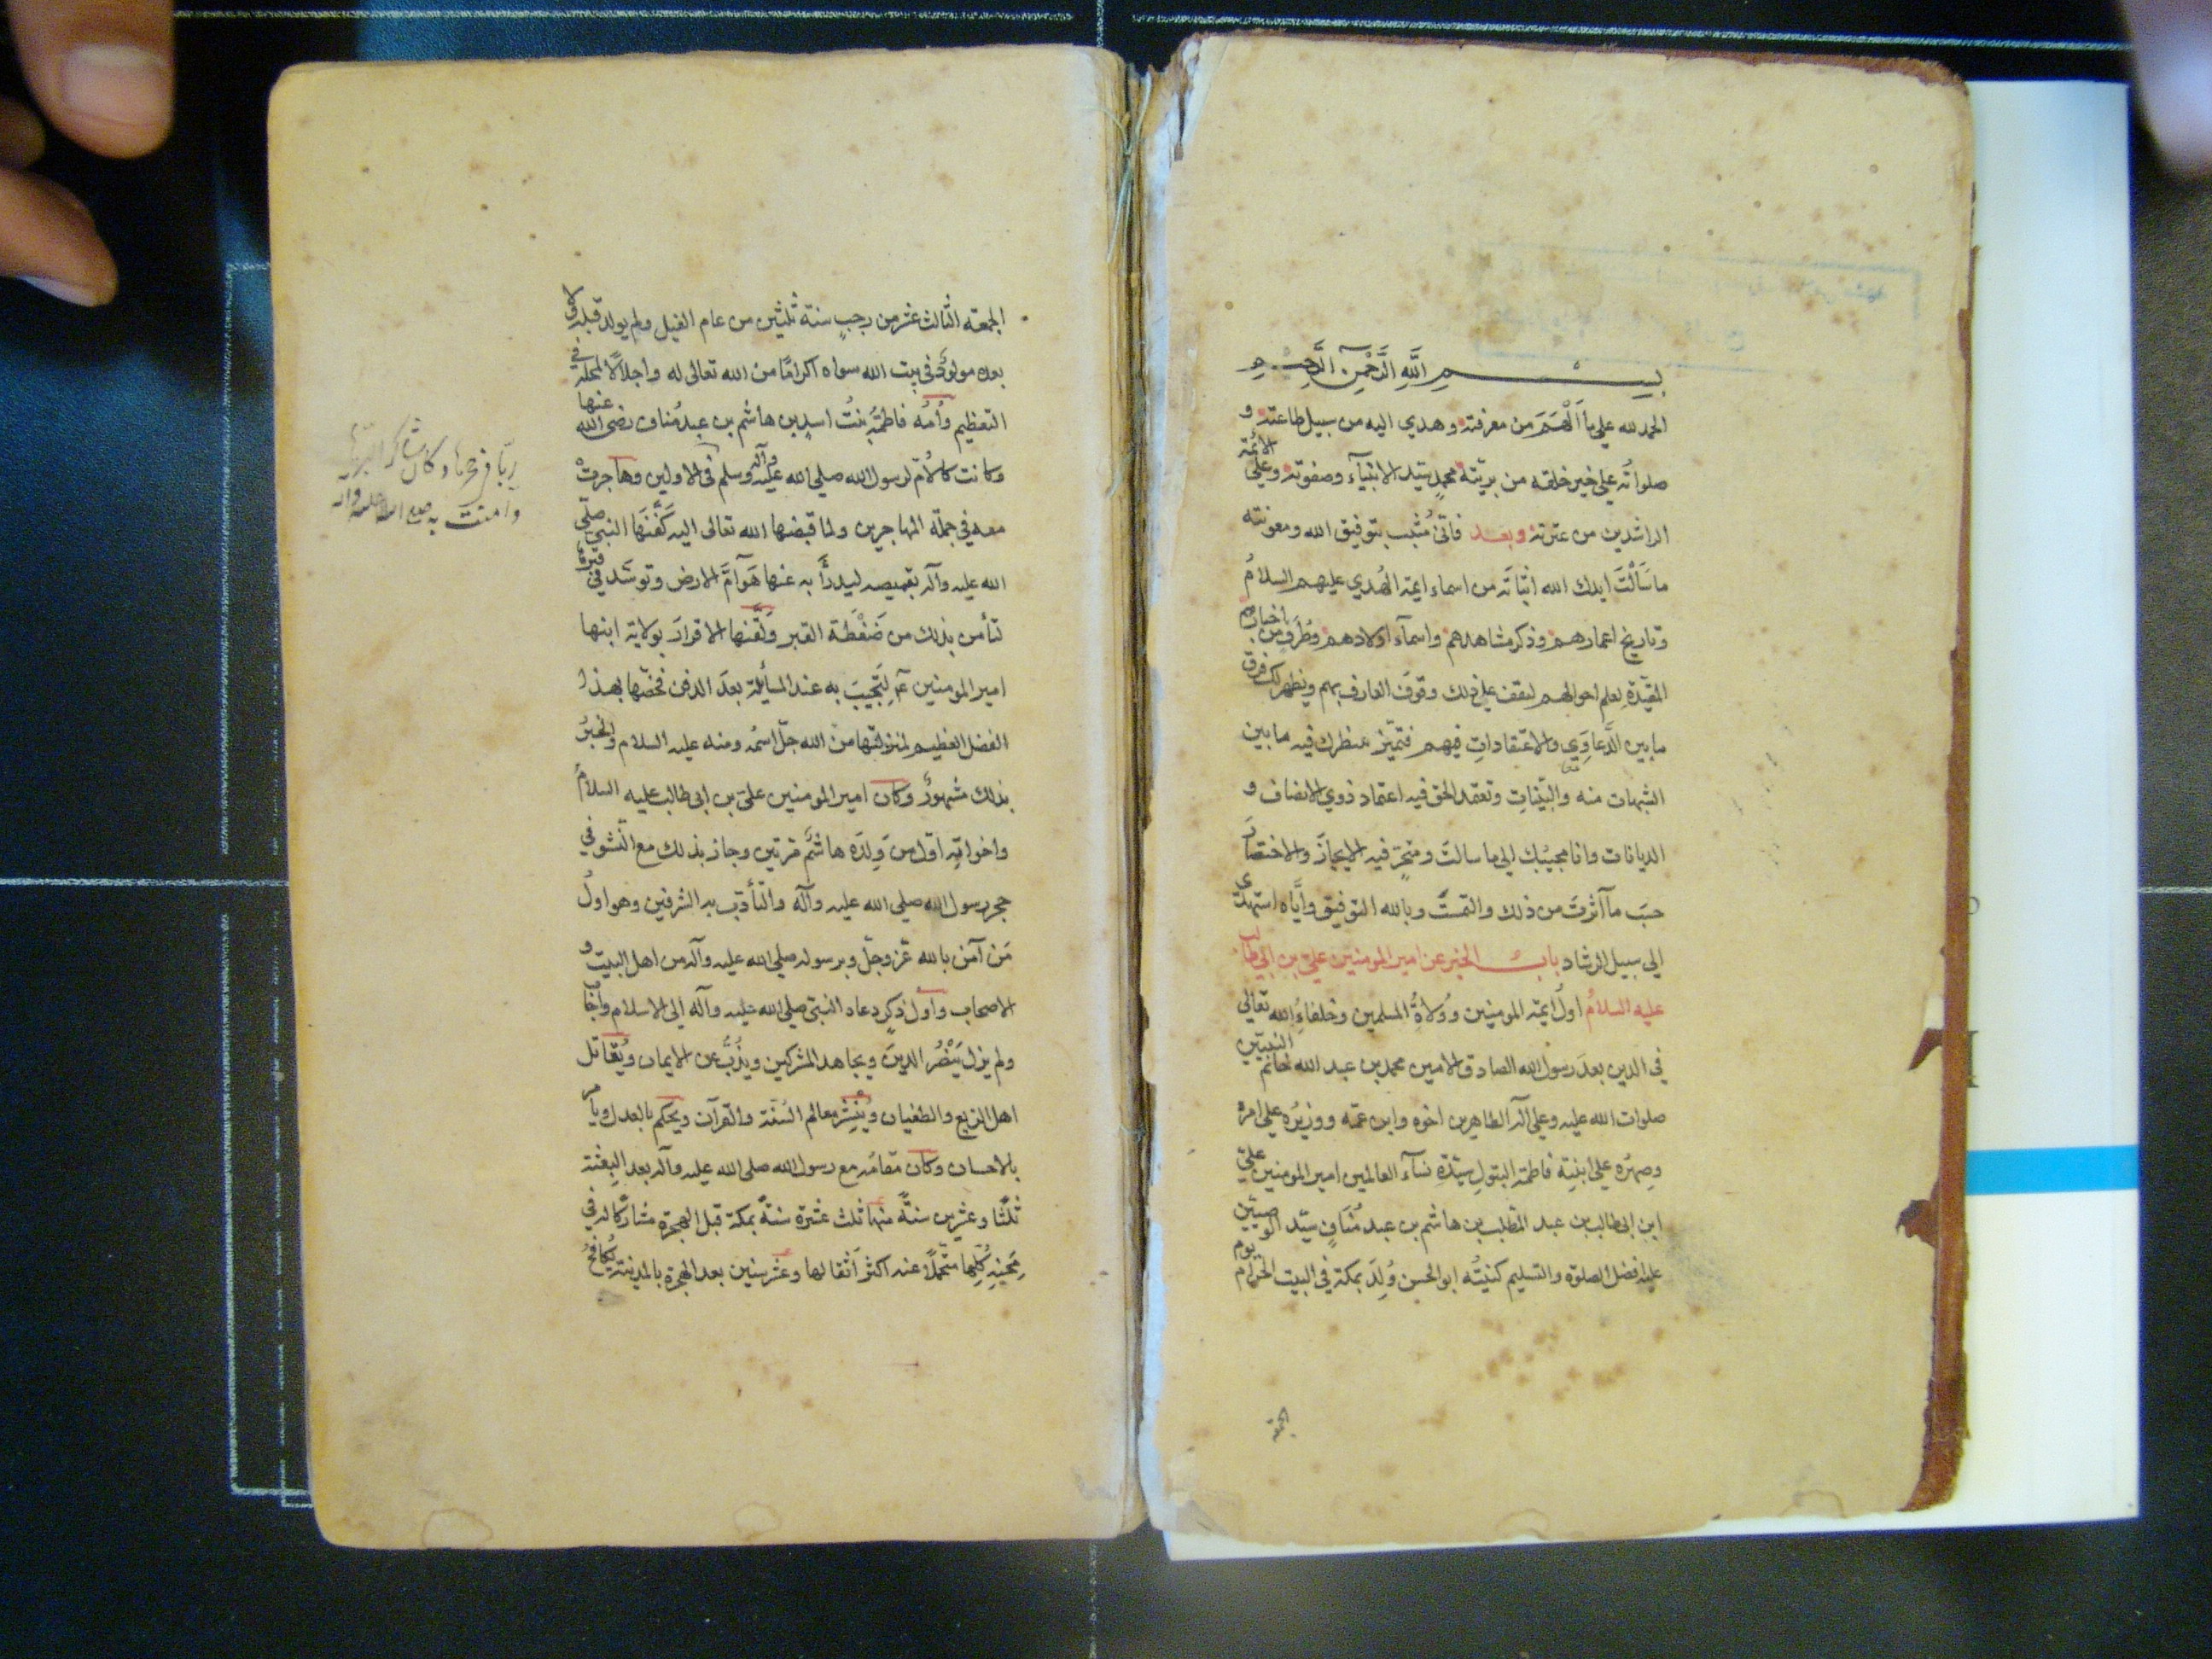 بسم الله الرحمن الرحيم
الحمد لله علي ما اَلْهَمَ من معرفته وهدي اليه من سبيل طاعته و
صلواته علي خير خلقه من بريّته محمدٍ سيّد الانبيآء وصفوته وعلي الائمّة
الراشدين من عترته وبعد فانّي مُثبت بتوفيق الله ومعونته
ما سَاَلْتَ ايدك الله اثباتَه من اسماء ايمة الهُدي عليهم السلامُ
وتاريخ اعمارهم وذكر مشاهدهم واسمآء اولادهم وطُرَفٍ من اخبارهم
المفيدةِ لعلم احوالهم لتقف علي ذلك وقوفَ العارف بهم ويظهر لك فرق
ما بين الدَّعاوَي والاعتقاداتِ فيهم فتميّز بنظرك فيه ما بين
الشبهات منه والبيّناتِ وتعتمد الحق فيه اعتماد ذوي الانصاف و
الديانات وانا مجيبُك الي ما سالتَ ومتحرٍّ فيه الايجازَ والاختصارَ
حسَب ما آثرتَ من ذلك والتمستَ وبالله التوفيق وايَّاه استهدي
الي سبيل الرشاد باب الخبر عن امير المومنين عليّ بن ابي طالب
عليه السلامُ اولُ ايمة المومنين ووُلاةُ المسلمين وخلفاءُ الله تعالي
في الدين بعدَ رسول الله الصادق الامين محمد بن عبد الله خاتم النبيّين
صلوات الله عليه وعلي آله الطاهرين اخوه وابن عمّه ووزيرُه علي امره
وصِهرُه علي ابنتِه فاطمة البتولِ سيّدة نسآء العالمين امير المومنين عليّ
ابن ابي طالب بن عبد المطّلب بن هاشم بن عبد مُنافٍ سيّد الوصيّين
عليه افضل الصلوة والتسليم كنيتُه ابو الحسن وُلِدَ بمكة في البيت الحرام يوم
الجمعة
الجمعة الثالث عشر من رجبٍ سنة ثلثين من عام الفيل ولم يولد قبله ولا
بعده مولودٌ في بيت الله سواه اكرامًا من الله تعالى له واجلالًا لمحله في
التعظيم وأُمّه فاطمةُ بنتُ اسدِ بن هاشم بن عبد مُناف رضى الله عنها
وكانت كالأمّ لرسول الله صلي الله عليه وآله وسلم في الاولين وهاجرتْ
معه في جملة المهاجرين ولما قبضها الله تعالى اليه كَفَّنَها النبي صلّى
الله عليه وآله بقميصه ليدرأَ به عنها هَوَآمَّ الارض وتوسَّد في قبرها
لتأمن بذلك من ضَغْطَة القبر ولَقَّنها الاقرارَ بولاية ابنها
امير المومنين ع لِتجيبَ به عند المسائلة بعدَ الدفن فخصّها بهذا
الفضل العظيم لمنزلتها من الله جلّ اسمُه ومنه عليه السلام والخبرُ
بذلك مشهورٌ وكان امير المومنين عليّ بن ابي طالب عليه السلامُ
واخواتِه اوّل من وَلَدَه هاشمٌ مرتين وجاز بذلك مع النّشو في
حجر رسول الله صلي الله عليه وآله والتأدّبِ به الشرفين وهو اولُ
مَن آمن بالله عزّ وجلّ وبرسوله صلي الله عليه وآله من اهل البيت و
الاصحاب واول ذكرٍ دعاه النبيّ صلي الله عليه وآله الي الاسلام واجاب
ولم يزل يَنْصُرُ الدينَ ويجاهد المشركين ويذُبّ عن الايمان ويُقاتل
اهل الزيغ والطغيان ويَنْشِرُ معالم السُنّة والقرآن ويحكم بالعدل ويأمر
بالاحسان وكان مقامُه مع رسول الله صلي الله عليه وآله بعد البعثة
ثلثًا وعشرين سنةً منها ثلث عشرة سنةً بمكة قبل الهجرة مشاركًا له في
مِحَنِه كُلِّها متحمّلًا عنه اكثرَ اَثقالها وعشر سنين بعد الهجرة بالمدينة يُكافحُ
وامنت به صلى الله عليه وآله